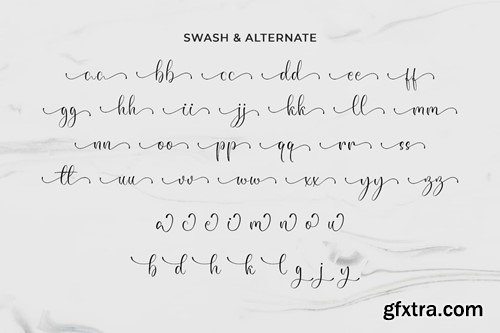 SWASH & ALTERNATE
aa bb cc dd ee ff
gg hh ii jj kk ll mm
nn oo pp qq rr ss
tt uu vv ww xx yy zz
a c e i m n o w
b d h k l g j y
gfxtra.com